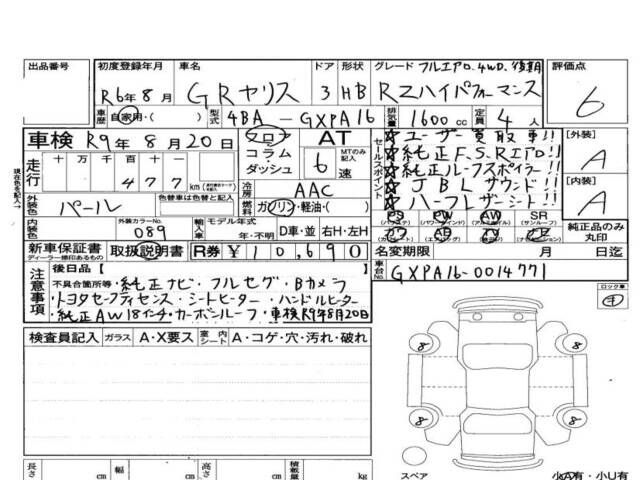 出品番号 初度登録年月 車名 ドア 形状 グレード フルエアロ、4WD、後期 評価点
R6年8月 GRヤリス 3 HB RZハイパフォーマンス 6
車歴 自家用・( ) 型式 4BA-GXPA16 排気量 1600cc 定員 4人
車検 R9年8月20日 フロア AT セールスポイント ☆ユーザー買取車!! [外装] A
走行 十万千百十 477 km コラム ダッシュ 6速 MTのみ記入 ☆純正F.S.Rエアロ!!
☆純正ルーフスポイラー
現在色を記入→ 外装色 パール 色替車は色替と記入 冷房 AAC ☆JBLサウンド!! [内装] A
燃料 ガソリン・軽油・( ) ☆ハーフレザーシート!!
内装色 外装カラーNo. 089 輸入車 モデル年式 年・不明 D車・並 右H・左H PS PW AW SR 純正品のみ丸印
(パワステ) (パワーウインド) (サンルーフ)
(エアバッグ) (ナビ)
新車保証書 取扱説明書 R券 ¥10,690 名変期限 月 日迄
ディーラー捺印あるもの
車台No. GXPA16-0014771
注意事項 後日品【 】
不具合箇所等・純正ナビ・フルセグ・Bカメラ
・トヨタセーフティセンス・シートヒーター・ハンドルヒーター
・純正AW18インチ・カーボンルーフ・車検R9年8月20日
ロック車
検査員記入 ガラス A・X要ス 室内シート A・コゲ・穴・汚れ・破れ
8 8
8 8
長さ cm 幅 cm 高さ cm 積載量 kg スペア 小A有・小U有